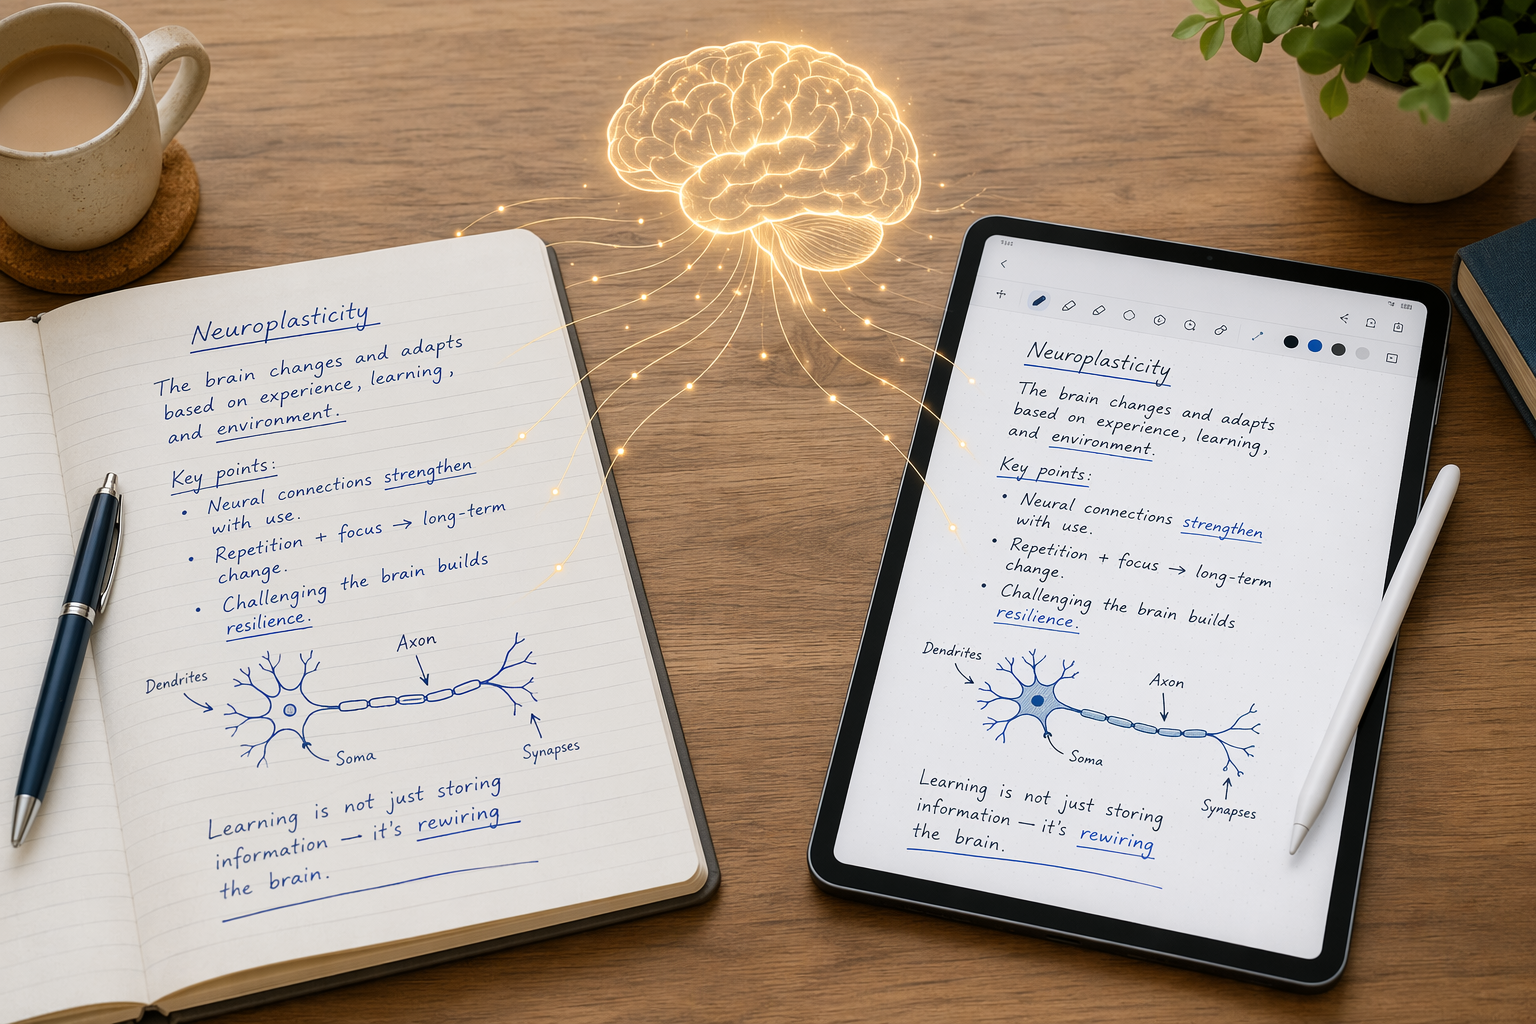 Neuroplasticity
The brain changes and adapts
based on experience, learning,
and environment.
Key points:
• Neural connections strengthen
with use.
• Repetition + focus → long-term
change.
• Challenging the brain builds
resilience.
Dendrites
Axon
Soma
Synapses
Learning is not just storing
information — it's rewiring
the brain.
Neuroplasticity
The brain changes and adapts
based on experience, learning,
and environment.
Key points:
• Neural connections strengthen
with use.
• Repetition + focus → long-term
change.
• Challenging the brain builds
resilience.
Dendrites
Axon
Soma
Synapses
Learning is not just storing
information — it's rewiring
the brain.